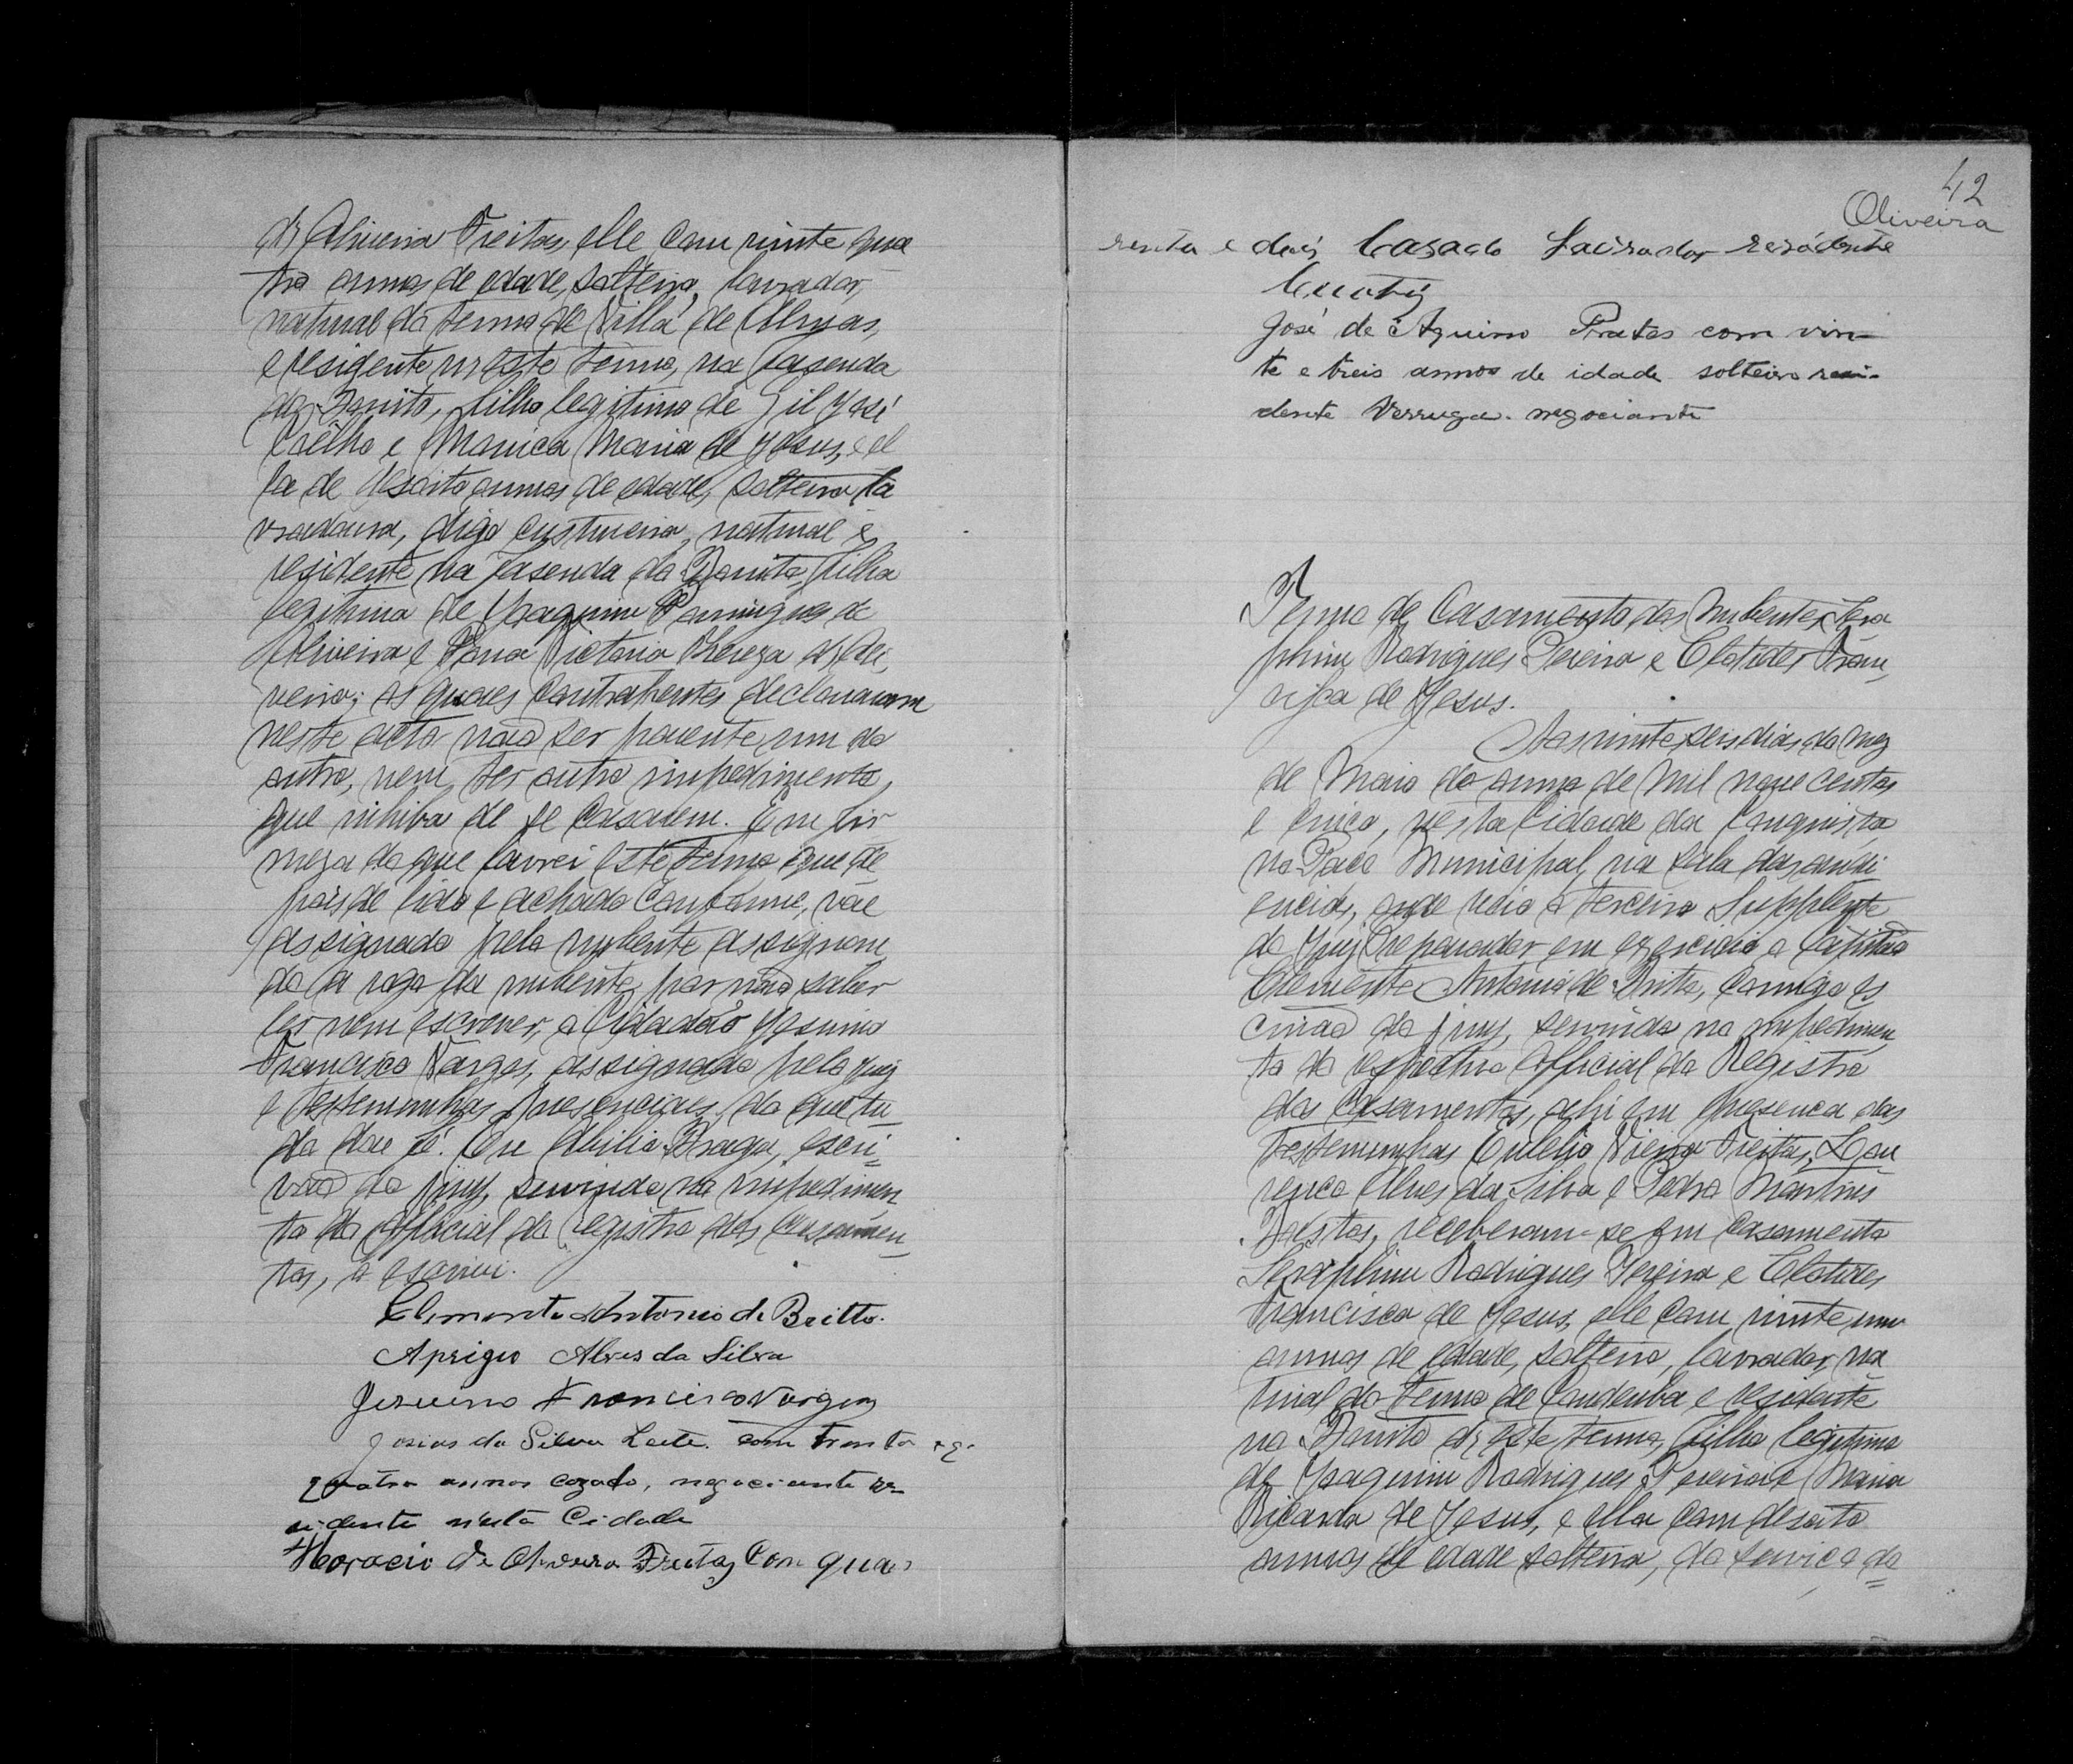 de Oliveira Freitas, elle com vinte qua
tro annos de edade, solteiro, lavrador,
natural do termo de Villa de
e residente n'este termo, na fasenda
do Bonito, filho legitimo de Gil José
Coêlho e Manica Maria de Jesus, e el
la de desoito annos de edade, solteira la
vradoura, digo custureira, natural e
residente na fasenda do Bonito, filha
legitima de Joaquim Domingues de
Oliveira e Dona Victoria Thereza de Oli
veira; os quaes contrahentes declararam
neste acto não ser parente um do
outro, nem ter outro impedimento,
que inhiba de se casarem. Em fir
meza do que lavrei este termo que de
pois de lido e achado conforme, vae
assignado pelo nubente assignan
do a rogo da nubente, por não saber
ler nem escrever, o Cidadão Jesuino
Francisco Varges, assignado pelo juiz
e testemunhas presenciaes, do que tu
do dou fé. Eu Abilio Braga, escri
vão do jury, servindo no impedimen
to do official do registro dos casamen
tos, o escrevi.
Clemente Antonio de Britto.
Aprigio Alves da Silva
Jesuino Francisco Varges
Josias da Silva Leite. com trenta e
quatro annos cazado, negociante re
sidente nesta Cidade
Horacio de Oliveira Freitas Com qua
42
Oliveira
renta e dois Casado Lavrador resódente

José de Aquino Prates com vin
te e treis annos de idade solteiro resi
dente Verruga. negociante
Termo de Casamento dos Nubentes Sera
phim Rodrigues Pereira e Clotides Fran
cisca de Jesus.
Aos vinte seis dias do mez
de Maio do anno de mil nove centos
e cinco, nesta Cidade da Conquista
no Paço Municipal, na sala das audi
encias, onde veio o terceiro Supplente
do Juiz Preparador em exercicio o Capitão
Clemente Antonio de Britto, comigo es
crivão do jury, servindo no impedimen
to do respectivo Official do Registro
dos Casamentos, ahi em presença das
testemunhas Vieira Freitas, Lou
renço Alves da Silva e Pedro Martins
Bastos, receberam-se em casamento
Seraphim Rodrigues Pereira e Clotides
Francisca de Jesus, elle com vinte um
annos de edade, solteiro, lavrador, na
tural do termo de Condeuba e residente
no Bonito d'este termo, filho legitimo
de Joaquim Rodrigues Pereira e Maria
Ricarda de Jesus, e ella com desoito
annos de edade solteira, do serviço do